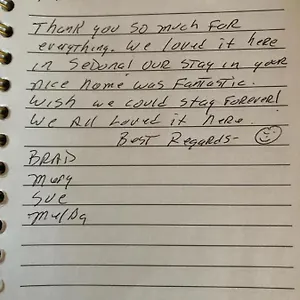 Thank you so much for
everything. We loved it here
in Sedona! Our stay in your
nice home was Fantastic.
Wish we could stay Forever!
We All Loved it here.
Best Regards-
BRAD
Mary
Sue